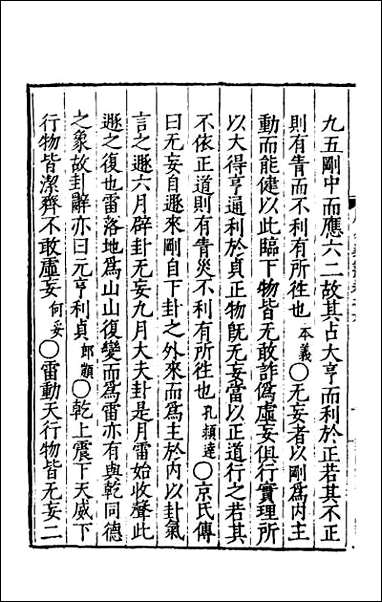 九五剛中而應六二故其占大亨而利於正若其不正
則有眚而不利有所往也本義〇无妄者以剛爲内主
動而能健以此臨下物皆无敢詐僞虛妄俱行實理所
以大得亨通利於貞正物旣无妄當以正道行之若其
不依正道則有眚災不利有所往也孔頴達〇京氏傳
曰无妄自遯來剛自下卦之外來而爲主於内以卦氣
言之遯六月辟卦无妄九月大夫卦是月雷始收聲此
遯之復也雷洛地爲山山復變而爲雷亦有與乾同德
之象故卦辭亦曰元亨利貞郎顗〇乾上震下天威下
行物皆潔齊不敢虛妄何妥〇雷動天行物皆无妄二